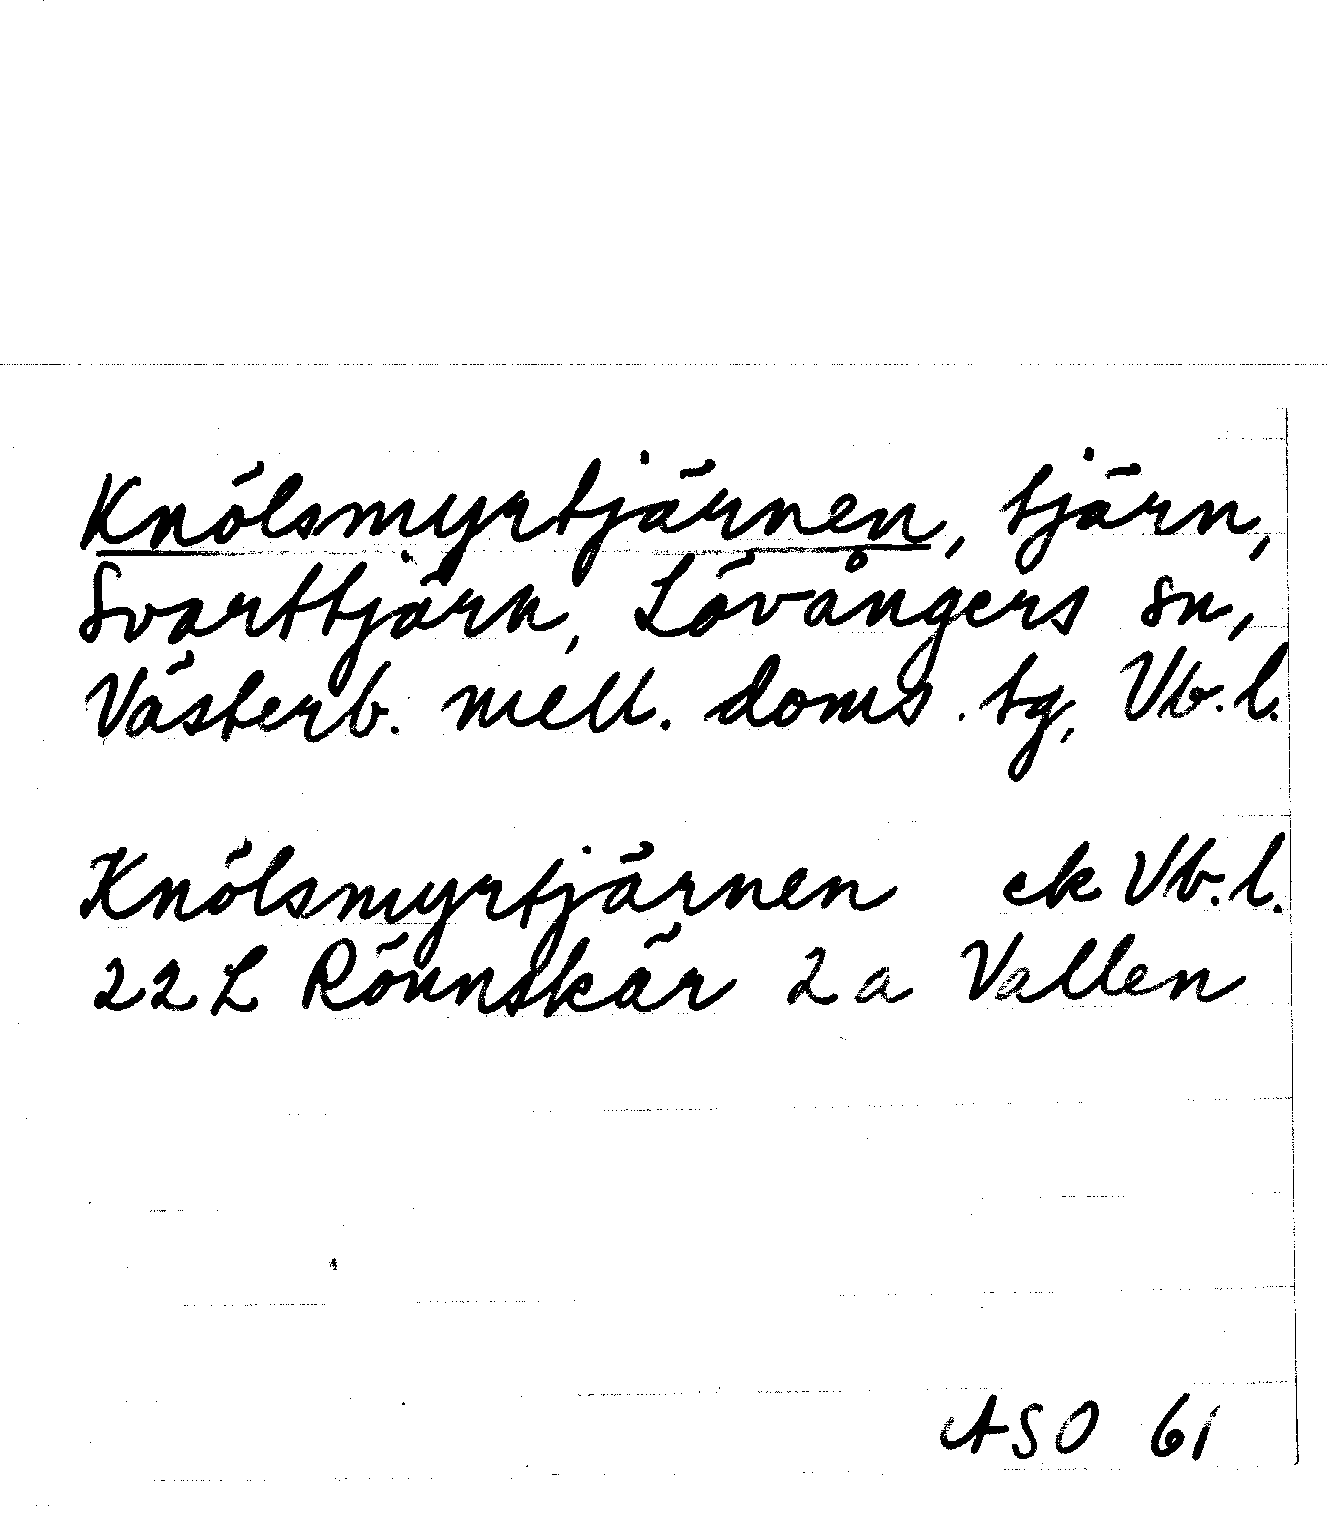 Knölsmyrtjärnen, tjärn,
Svarttjärn, Lövångers sn,
Västerb. mell. doms. tg, Vb.l.
Knölsmyrtjärnen ek Vb.l.
22L Rönnskär 2a Vallen
ASO 61